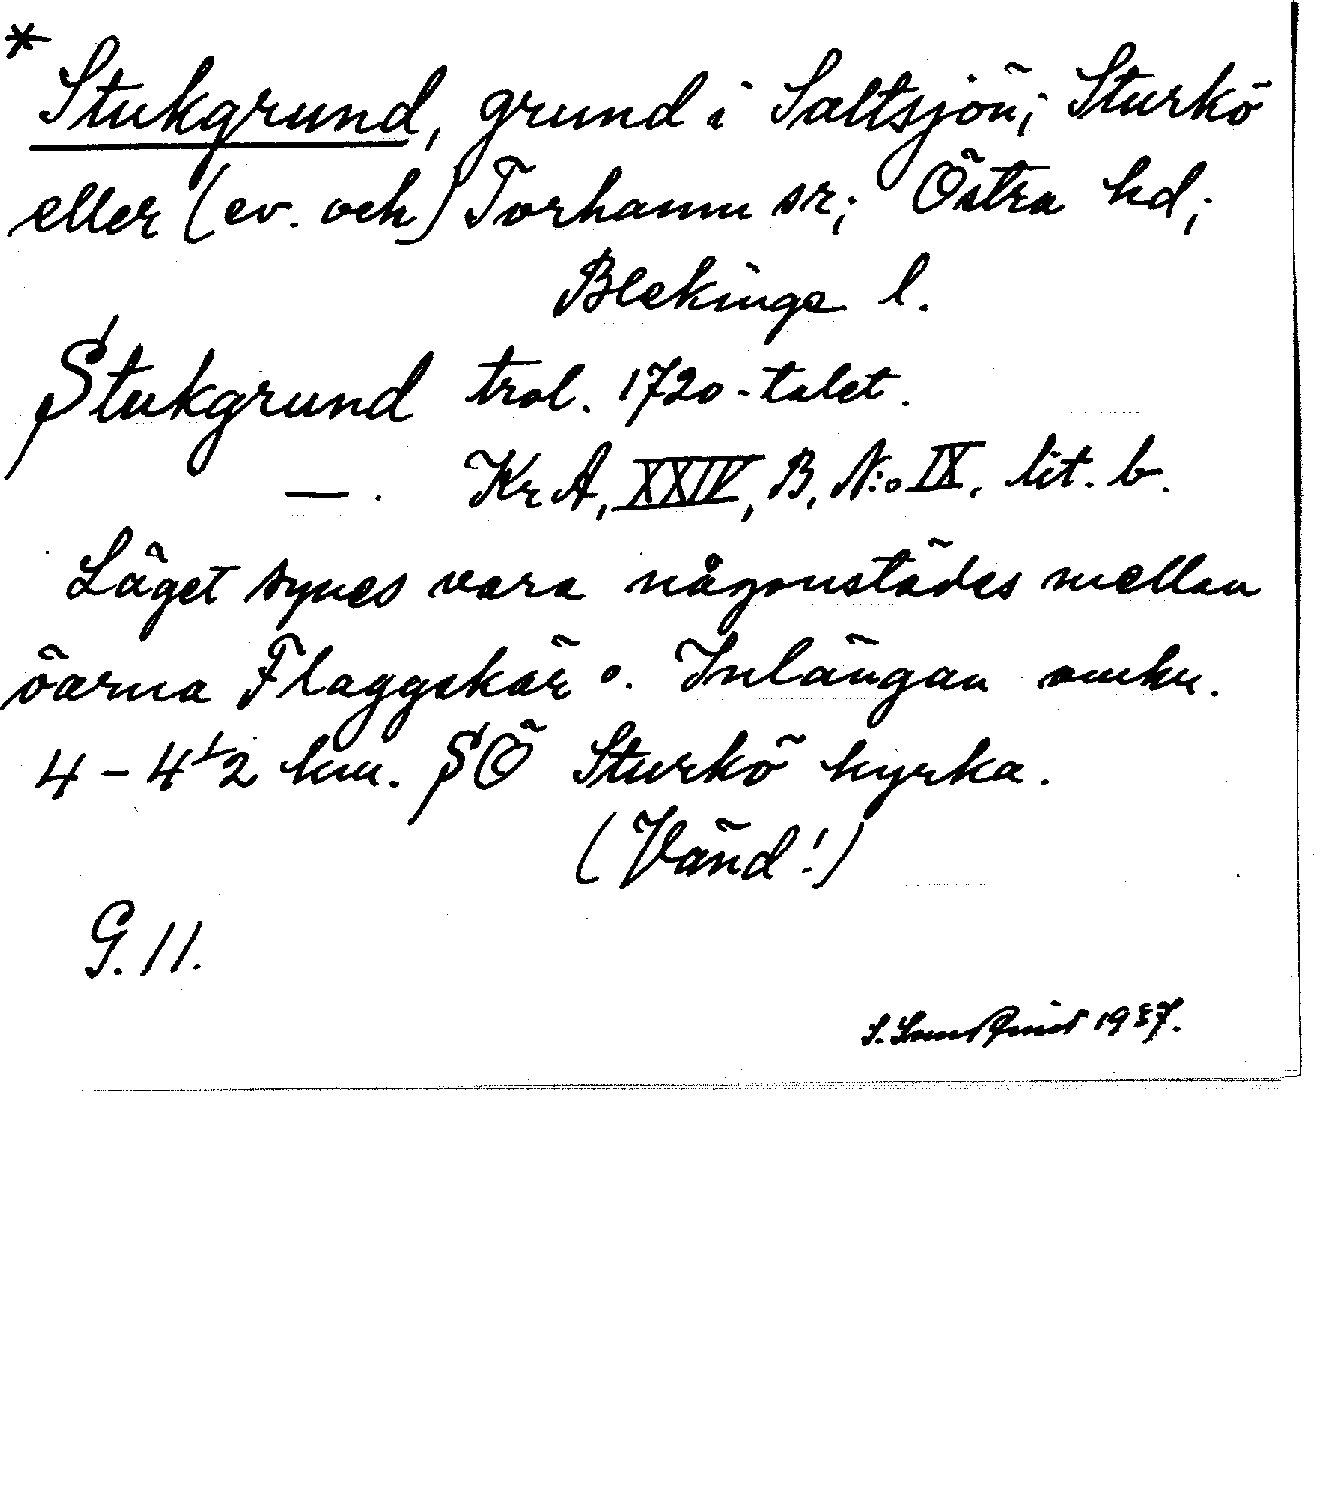 * Stukgrund, grund i Saltsjön; Sturkö
eller (ev. och) Torhamn sn; Östra hd;
Blekinge l.
Stukgrund trol. 1720-talet.
— . KrA, XXIV, B, N:o IX. lit. b.
Läget synes vara någonstädes mellan
öarna Flaggskär o. Inlängan omkr.
4 – 4 1/2 km. SÖ Sturkö kyrka.
(Vänd!)
G. 11.
S. 1937.